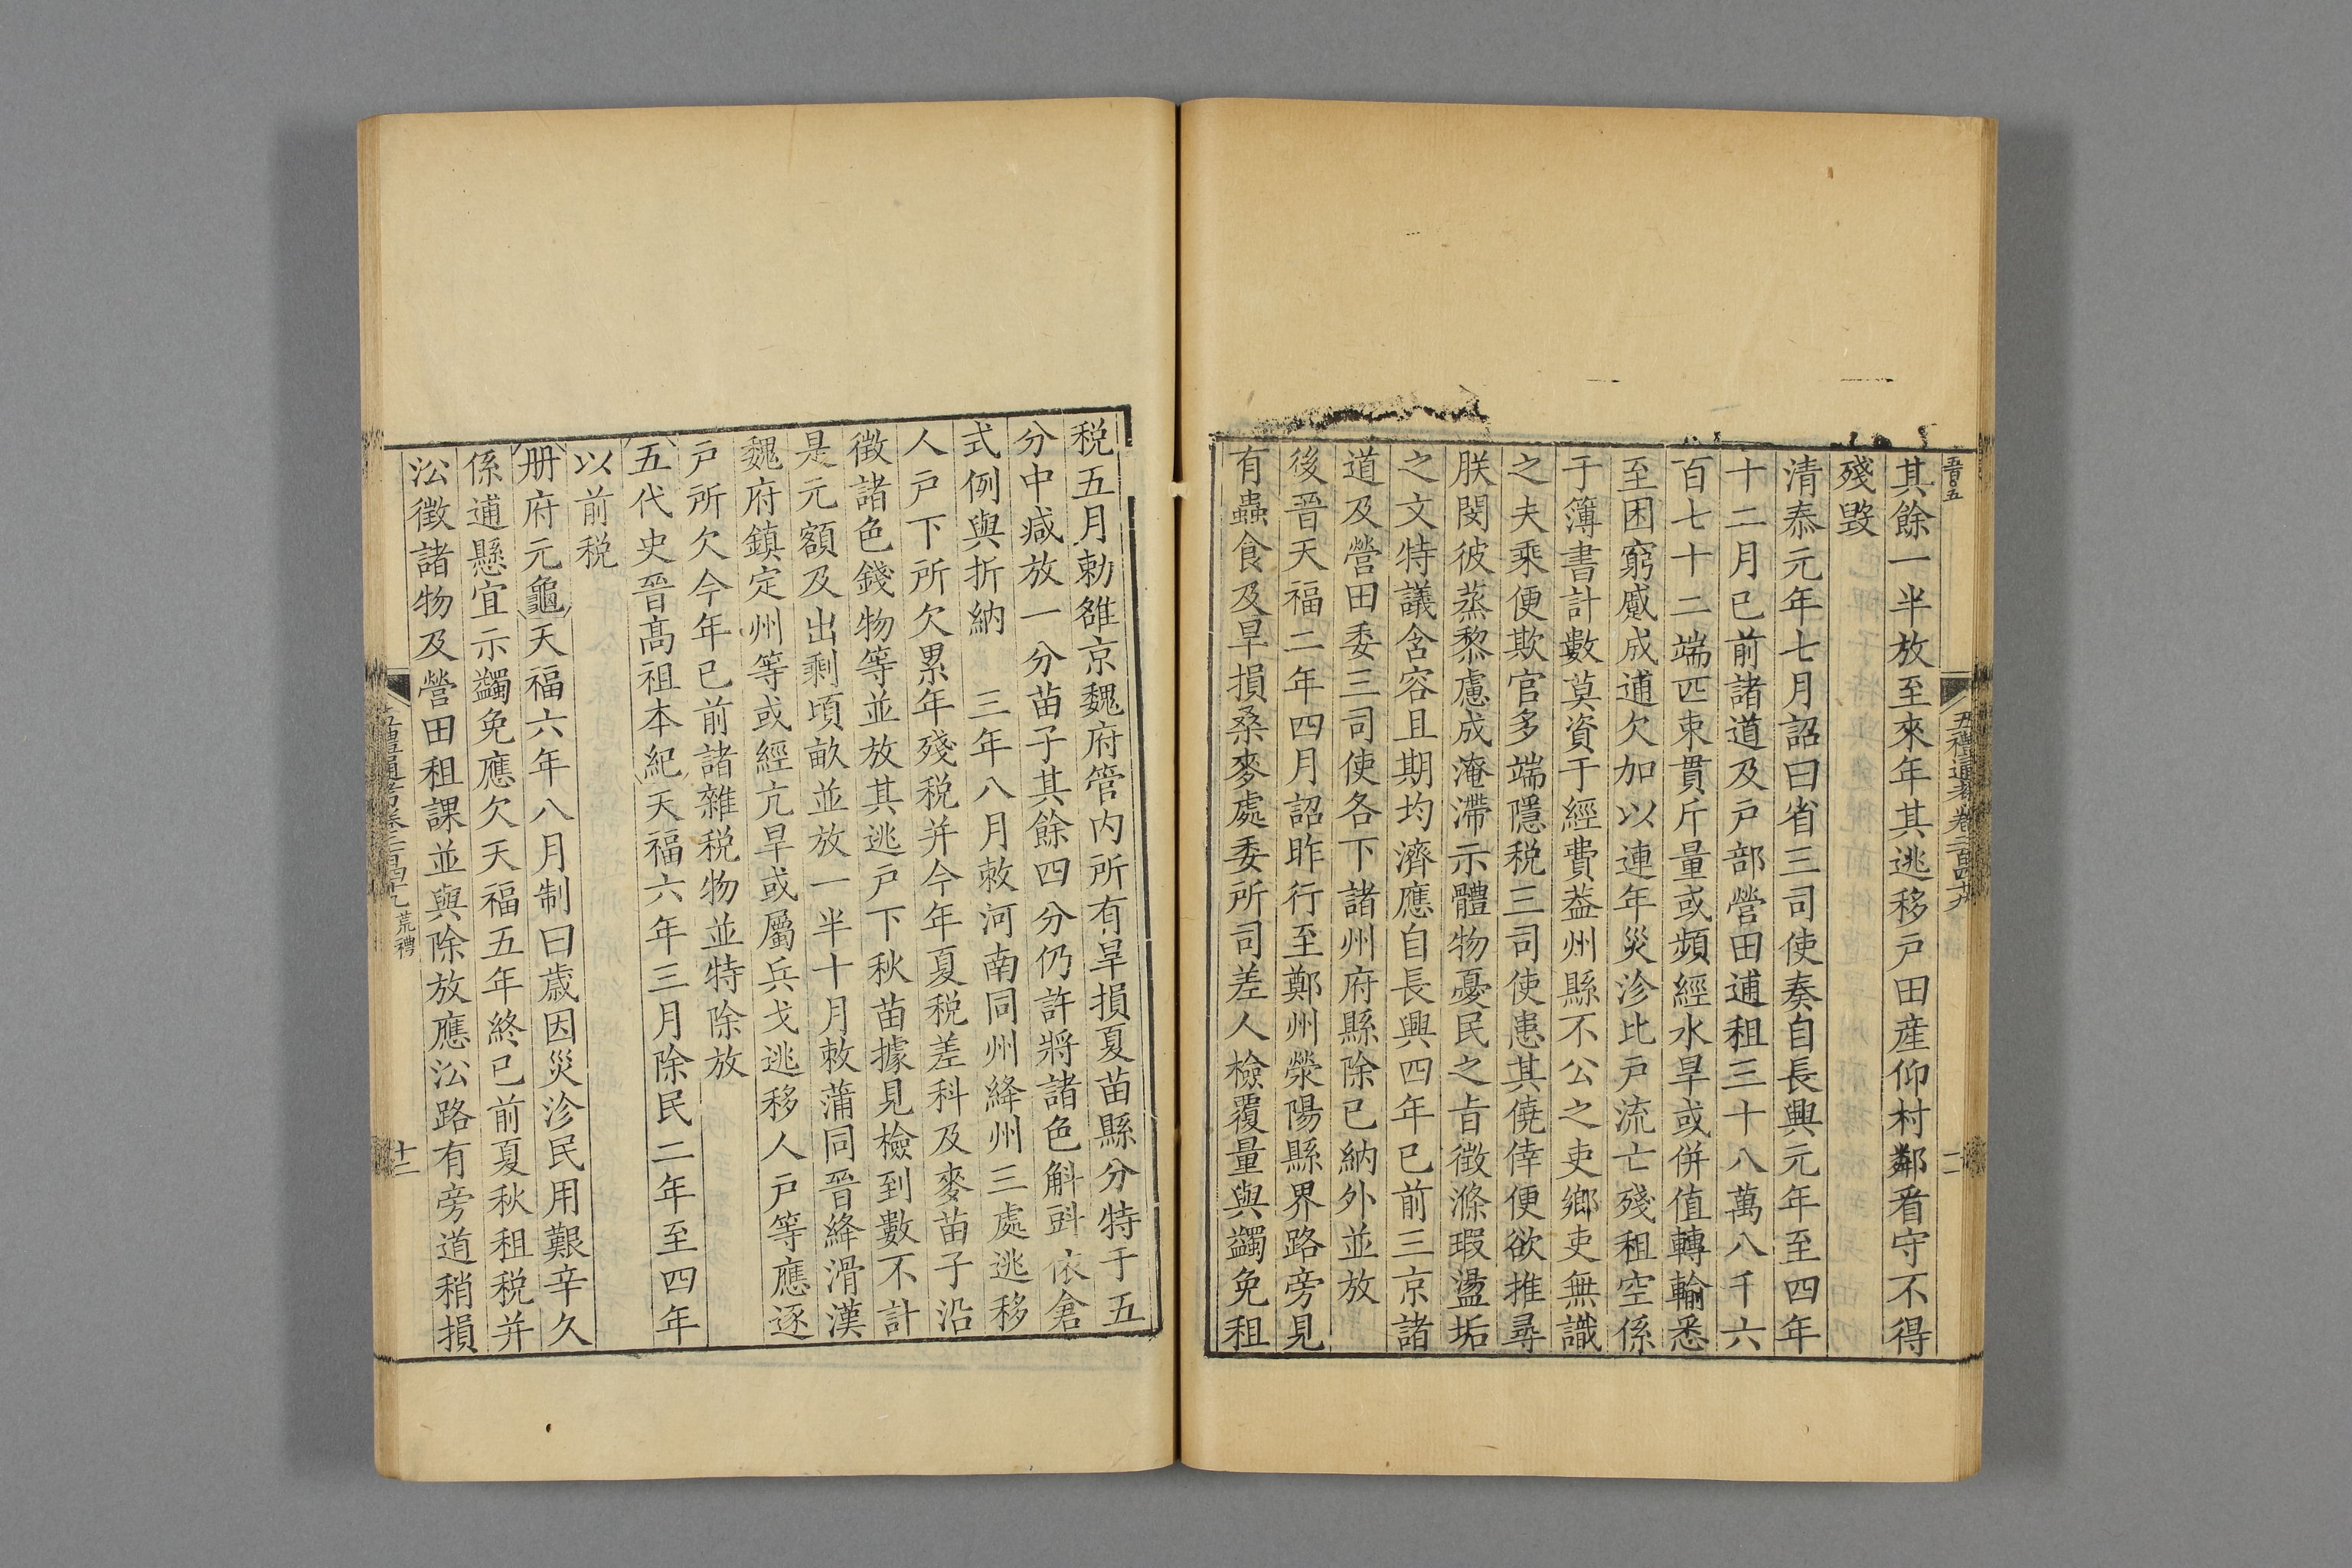 其餘一半放至來年其逃移户田産仰村鄰看守不得
殘毀
清泰元年七月詔曰省三司使奏自長興元年至四年
十二月已前諸道及户部營田逋租三十八萬八千六
百七十二端匹束貫斤量或頻經水旱或併值轉輸悉
至困窮蹙成逋欠加以連年災沴比户流亡殘租空係
于簿書計數莫資于經費葢州縣不公之吏鄉吏無識
之夫乘便欺官多端隱税三司使患其僥倖便欲推尋
朕閔彼蒸黎慮成淹滯示體物憂民之㫖徵滌瑕盪垢
之文特議含容且期均濟應自長興四年已前三京諸
道及營田委三司使各下諸州府縣除已納外並放
後晉天福二年四月詔昨行至鄭州滎陽縣界路旁見
有蟲食及旱損桑麥處委所司差人檢覆量與蠲免租
税五月勅雒京魏府管内所有旱損夏苗縣分特于五
分中減放一分苗子其餘四分仍許將諸色斛㪷依倉
式例與折納　三年八月敕河南同州絳州三處逃移
人户下所欠累年殘税并今年夏税差科及麥苗子沿
徵諸色錢物等並放其逃户下秋苗據見檢到數不計
是元額及出剩頃畝並放一半十月敕蒲同晉絳滑漢
魏府鎮定州等或經亢旱或屬兵戈逃移人户等應逐
户所欠今年已前諸雜税物並特除放
五代史晉髙祖本紀天福六年三月除民二年至四年
以前税
册府元龜天福六年八月制曰歲因災沴民用艱辛久
係逋懸宜示蠲免應欠天福五年終已前夏秋租税并
㳂徵諸物及營田租課並與除放應㳂路有旁道稍損
五禮通考卷二百四十九 荒禮
十二